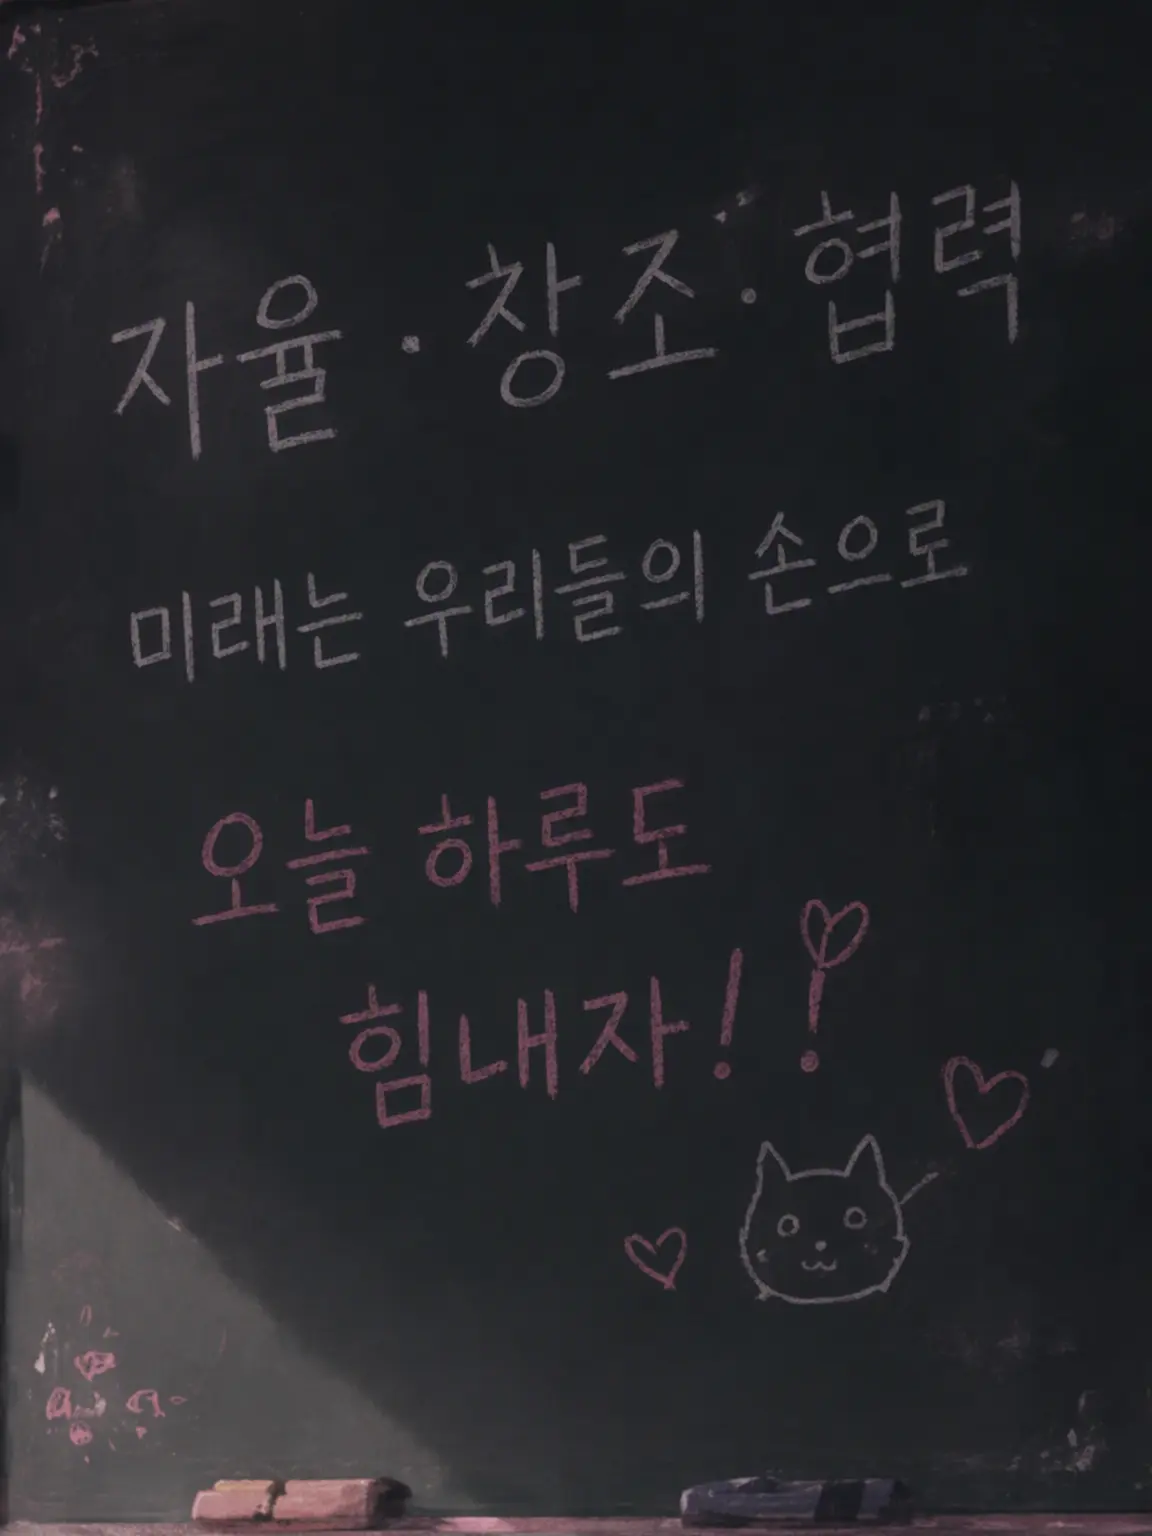 자율·창조·협력
미래는 우리들의 손으로
오늘 하루도
힘내자!!